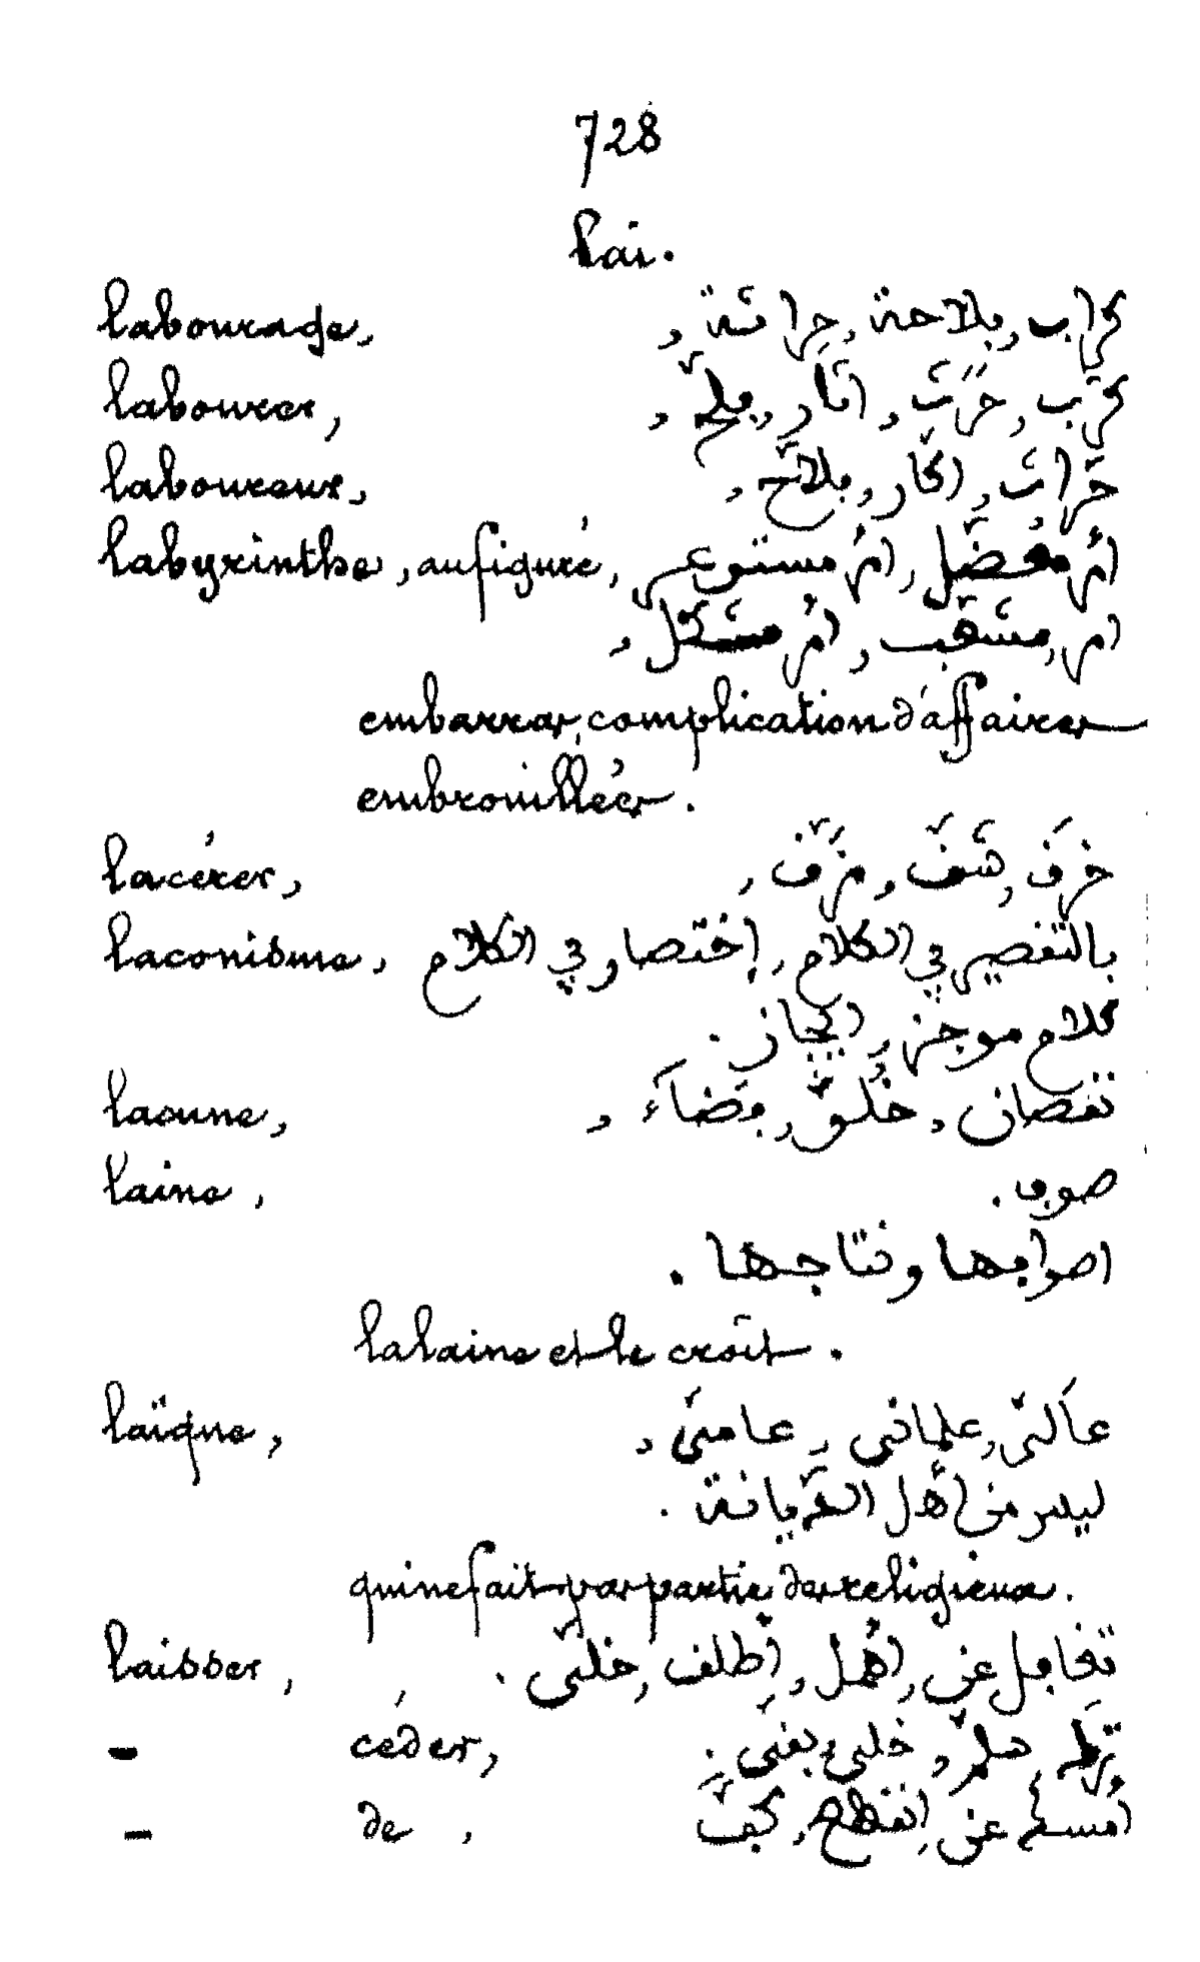 728
Lai.
labourage, كراب, بلاحة, حراثة,
labourer, كرب, حَرَث, اثار, بلّح,
laboureur, حرّاث, اكّار, بلاّح,
labyrinthe, au figuré, أمر معضل, أمر مستوعر,
امر مشقب, أمر مشكل,
embarras, complication d'affaires
embrouillées.
lacérer, خرق, شقّ, مزّق,
laconisme, بالتقصير في الكلام, إختصار في الكلام
كلام موجز, ايجاز.
lacune, نقصان, خُلُوّ, بضاء,
laine, صوب.
اصوابها ونتاجها.
la laine et le croît.
laïque, عالمّي, علماني, عامّي,
ليس من أهل الديانة.
qui ne fait pas partie des religieux.
laisser, تغابل عن, أهمل, أطلق, خلّى.
- céder, ترك, خلى
- de, أمسك عن, انقطع, كبّ